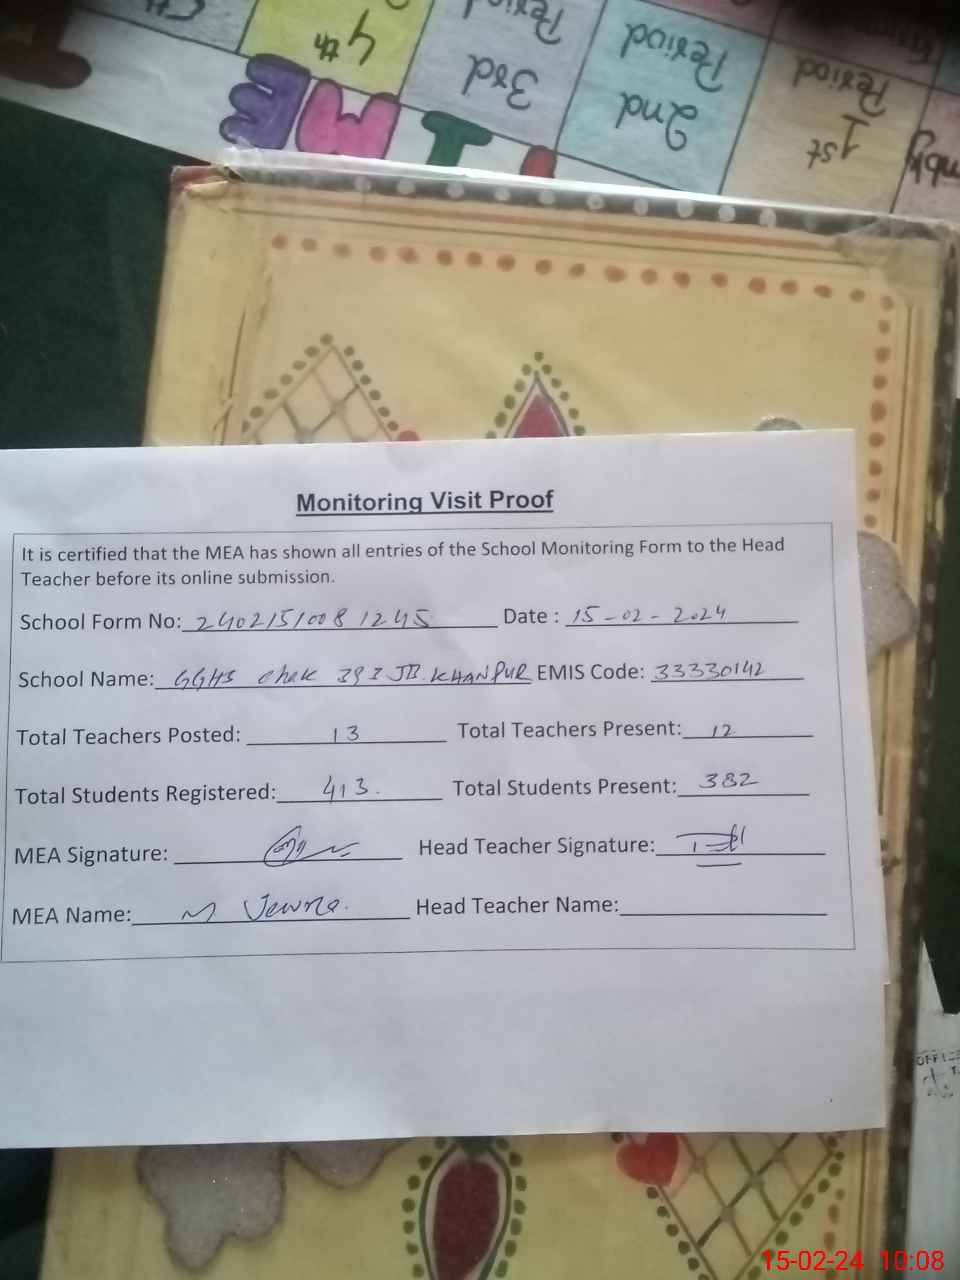 4th
3rd
Period
2nd
Period
1st
Period
TIME
Monitoring Visit Proof
It is certified that the MEA has shown all entries of the School Monitoring Form to the Head
Teacher before its online submission.
School Form No: 2402151008 1245 Date : 15-02-2024
School Name: GGHS Chak 392 JB. KHANPUR EMIS Code: 33330142
Total Teachers Posted: 13 Total Teachers Present: 12
Total Students Registered: 413. Total Students Present: 382
MEA Signature: Head Teacher Signature:
MEA Name: M Head Teacher Name:
15-02-24 10:08